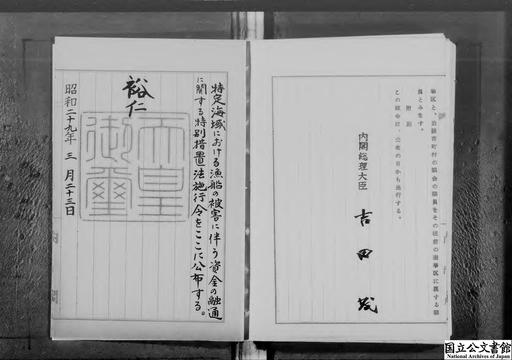 挙区と、当該市町村の議会の議員をその従前の選挙区に属する議
員とみなす。
附則
この政令は、公布の日から施行する。
内閣総理大臣
吉田茂
特定海域における漁船の被害に伴う資金の融通
に関する特別措置法施行令をここに公布する。
裕仁
天皇
御璽
昭和二十九年三月二十三日
国立公文書館
National Archives of Japan